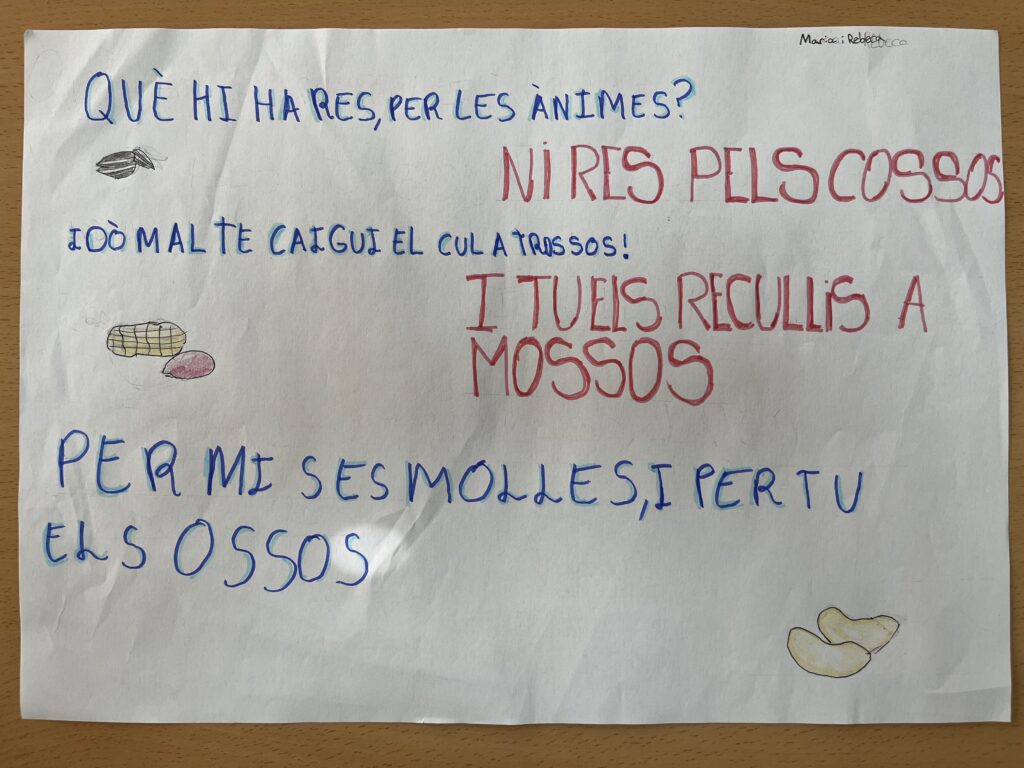 Maria i Rebeca
QUÈ HI HA RES, PER LES ÀNIMES?
NI RES PELS COSSOS
IDÒ MAL TE CAIGUI EL CUL A TROSSOS!
I TU ELS RECULLIS A
MOSSOS
PER MI SES MOLLES, I PER TU
ELS OSSOS